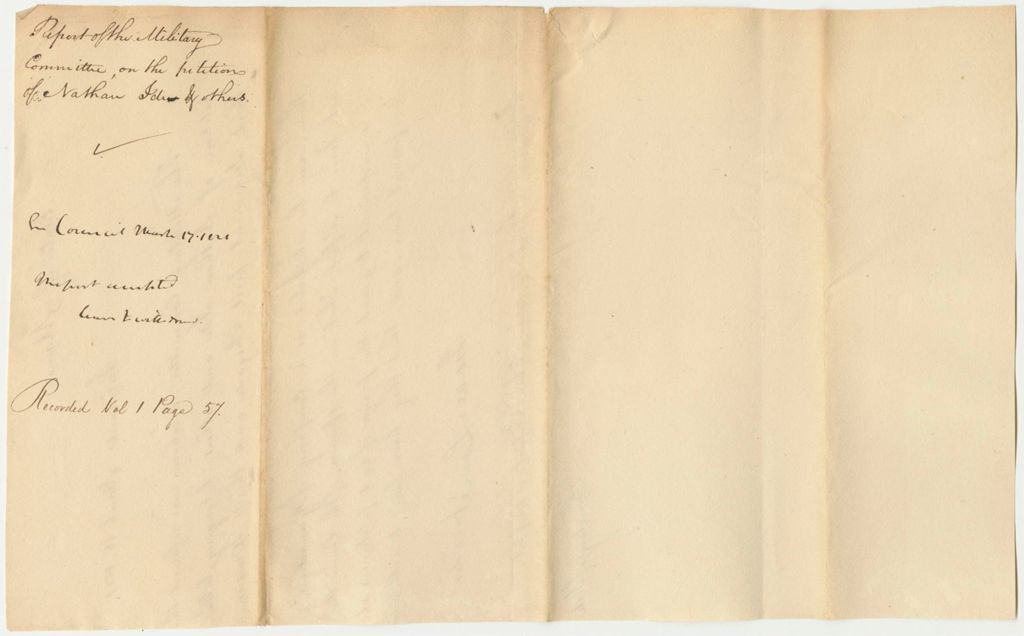 Report of the Military
Committee, on the petition
of Nathan Ide & others.
In Council March 17. 1821
Report accepted
leave to withdraw.
Recorded Vol 1 Page 57.